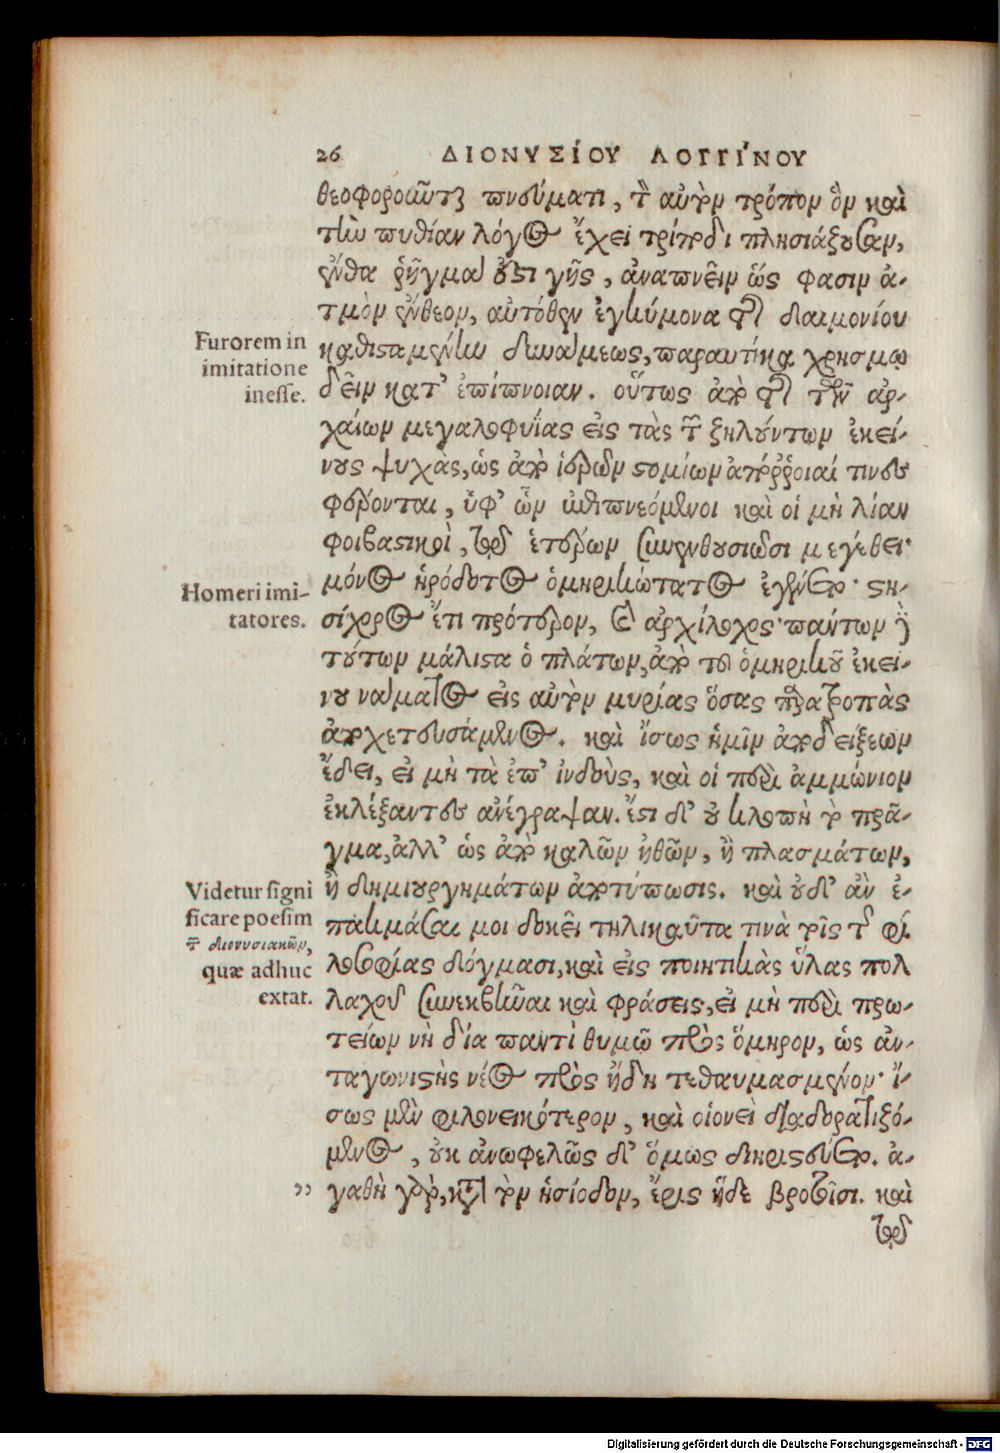 26 ΔΙΟΝΥΣΙΟΥ ΛΟΓΓΙΝΟΥ
θεοφοροῦνται πνεύματι, τὸν αὐτὸν τρόπον ὃν καὶ
τὴν πυθίαν λόγος ἔχει τρίποδι πλησιάζουσαν,
ἔνθα ῥῆγμα ἐστι γῆς, ἀναπνεῖν ὥς φασιν ἀ-
τμὸν ἔνθεον, αὐτόθεν ἐγκύμονα τῆς δαιμονίου
Furorem in
imitatione
inesse.
καθισταμένην δυνάμεως, παραυτίκα χρησμῳ
δεῖν κατ' ἐπίπνοιαν. οὕτως ἀπὸ τῆς τῶν ἀρ-
χαίων μεγαλοφυΐας εἰς τὰς τῶν ζηλούντων ἐκεί-
νους ψυχὰς, ὡς ἀπὸ ἱερῶν στομίων ἀπόρροιαί τινες
φέρονται, ὑφ' ὧν ἐπιπνεόμενοι καὶ οἱ μὴ λίαν
φοιβαστικοὶ, τῷ ἑτέρων συνενθουσιῶσι μεγέθει·
Homeri imi-
tatores.
μόνος ἡρόδοτος ὁμηρικώτατος ἐγένετο· στη-
σίχορος ἔτι πρότερον, ὅ τε ἀρχίλοχος· πάντων δὲ
τούτων μάλιστα ὁ πλάτων, ἀπὸ τοῦ ὁμηρικοῦ ἐκεί-
νου νάματος εἰς αὐτὸν μυρίας ὅσας παρατροπὰς
ἀποχετευσάμενος. καὶ ἴσως ἡμῖν ἀποδείξεων
ἔδει, εἰ μὴ τὰ ἐπ' ἰνδοὺς, καὶ οἱ περὶ ἀμμώνιον
ἐκλέξαντες ἀνέγραψαν. ἔστι δ' οὐ κλοπὴ τὸ πρᾶ-
γμα, ἀλλ' ὡς ἀπὸ καλῶν ἠθῶν, ἢ πλασμάτων,
Videtur signi
ficare poesim
τῶν διονυσιακῶν,
quæ adhuc
extat.
ἢ δημιουργημάτων ἀποτύπωσις. καὶ οὐδ' ἂν ἐ-
πακμάσαι μοι δοκεῖ τηλικαῦτα τινὰ τοῖς τῆς φι
λοσοφίας δόγμασι, καὶ εἰς ποιητικὰς ὕλας πολ
λαχοῦ συνεκβῆναι καὶ φράσεις, εἰ μὴ περὶ πρω-
τείων νὴ δία παντὶ θυμῷ πρὸς ὅμηρον, ὡς ἀν-
ταγωνιστὴς νέος πρὸς ἤδη τεθαυμασμένον· ἴ-
σως μὲν φιλονεικότερον, καὶ οἱονεὶ διαδορατιζό-
μενος, οὐκ ἀνωφελῶς δ' ὅμως διηριστεύετο. ἀ-
,, γαθὴ γὰρ, κατὰ τὸν ἡσίοδον, ἔρις ἥδε βροτοῖσι. καὶ
τῷ
Digitalisierung gefördert durch die Deutsche Forschungsgemeinschaft - DFG